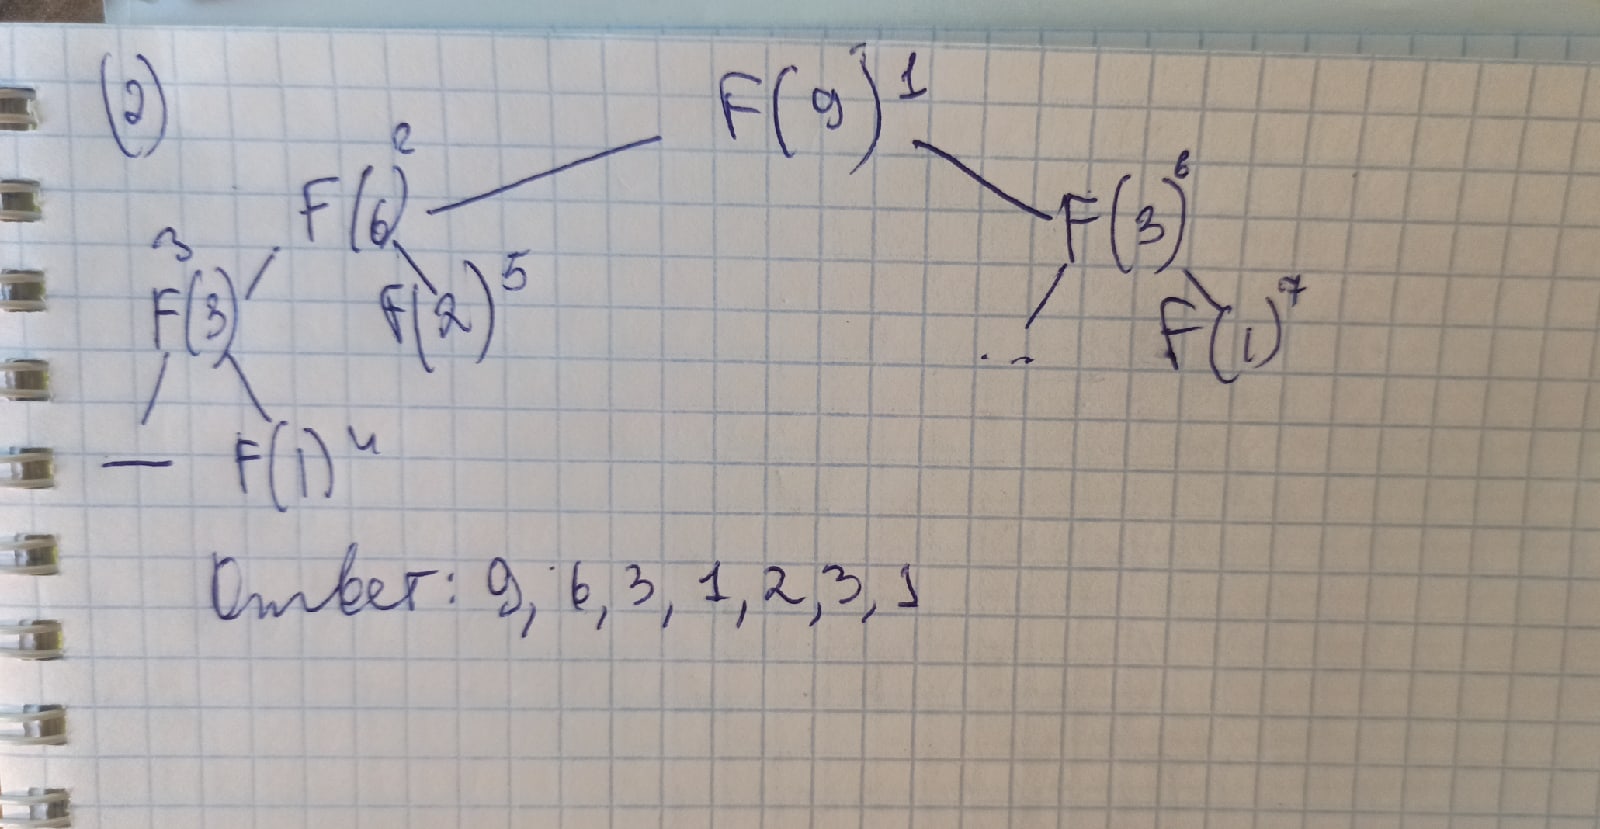 (2)
F(9) 1
F(6) 2
F(3) 6
F(3) 3
F(2) 5
F(1) 7
...
— F(1) 4
Ответ: 9, 6, 3, 1, 2, 3, 1